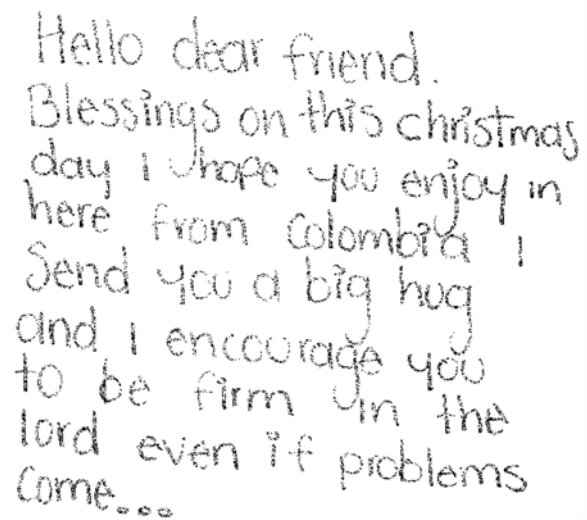 Hello dear friend.
Blessings on this christmas
day i hope you enjoy in
here from Colombia i
Send you a big hug
and i encourage you
to be firm in the
lord even if problems
come...